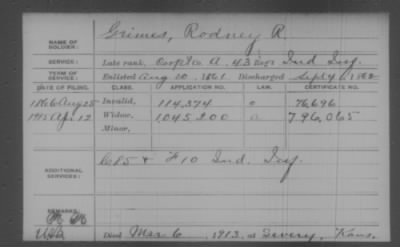 NAME OF SOLDIER: Grimes, Rodney R.
SERVICE: Late rank, Corpl Co. A. 43 Regt Ind Inf.
TERM OF SERVICE: Enlisted Aug 10, 1861 Discharged Sept 4, 1862
DATE OF FILING. CLASS. APPLICATION NO. LAW. CERTIFICATE NO.
1866 Aug 25 Invalid, 114,374 76696
1915 Apr 12 Widow, 1,045,200 796,065
Minor,
ADDITIONAL SERVICES: & F 10 Ind. Inf.
REMARKS:
Died Mar 6, 1913, at Severy, Kans.